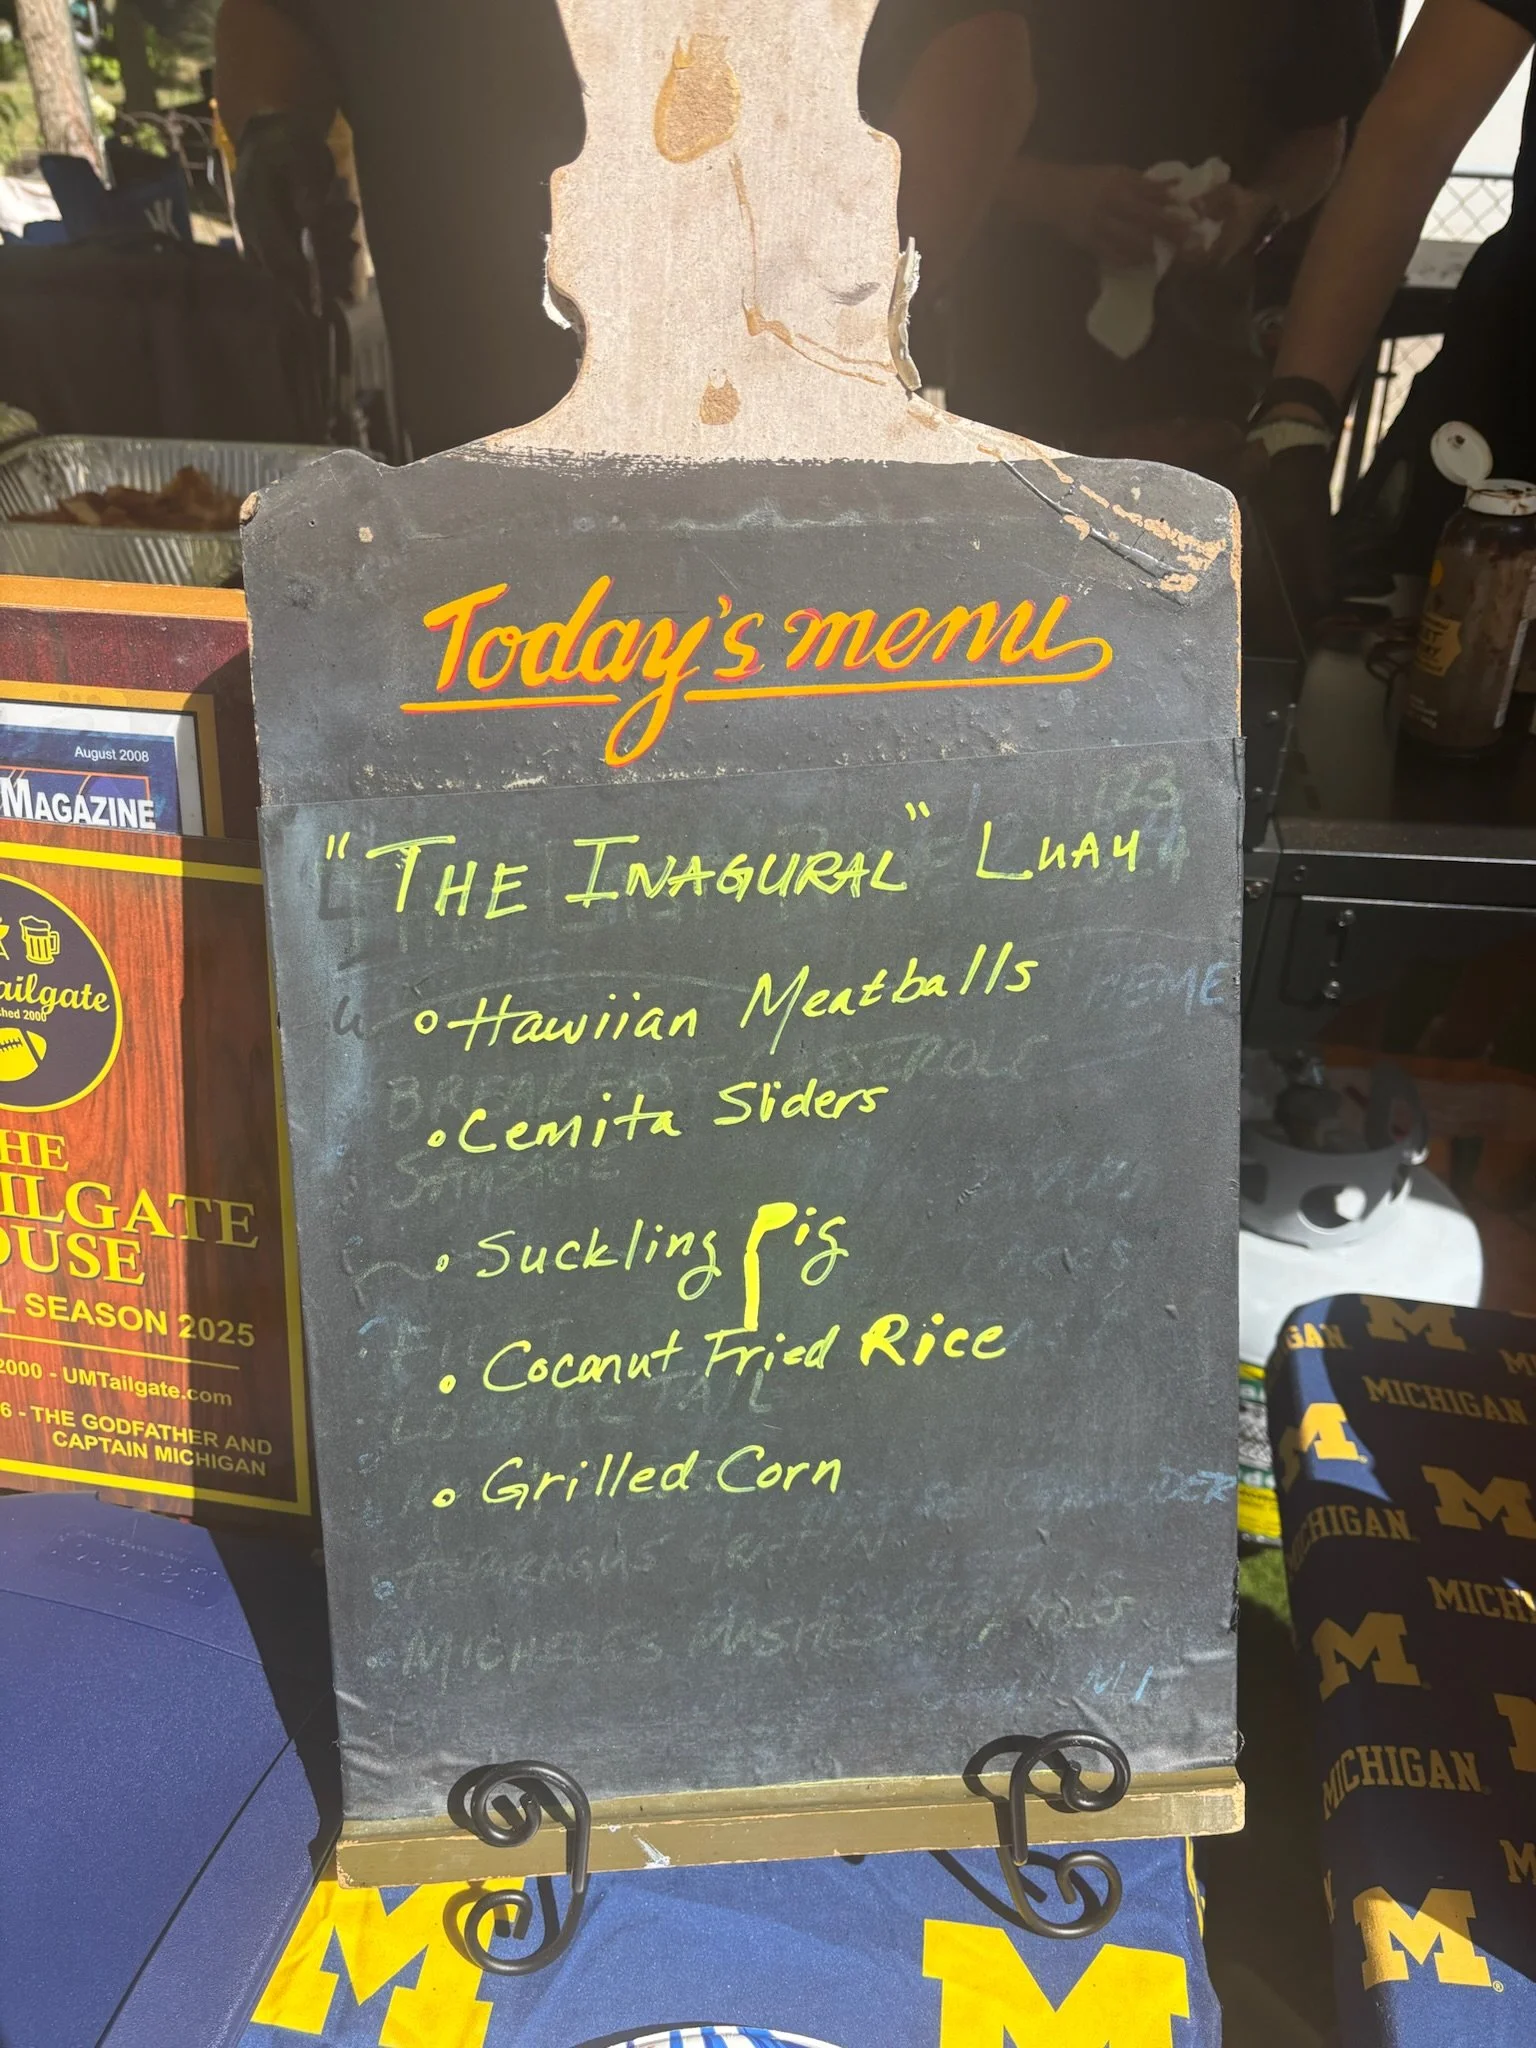 Today's menu
"THE INAGURAL" LUAU
Hawiian Meatballs
Cemita Sliders
Suckling Pig
Coconut Fried Rice
Grilled Corn
BREAKFAST CASSEROLE
SAUSAGE
ASPARAGUS GRATIN
MICHELES MASHED POTATOES
August 2008
MAGAZINE
ailgate
hed 2000
HE
ILGATE
OUSE
L SEASON 2025
2000 - UMTailgate.com
6 - THE GODFATHER AND
CAPTAIN MICHIGAN
GAN M M
MICHIGAN
M
M
HIGAN
MICH
M
MICHIGAN
M
M
M
M